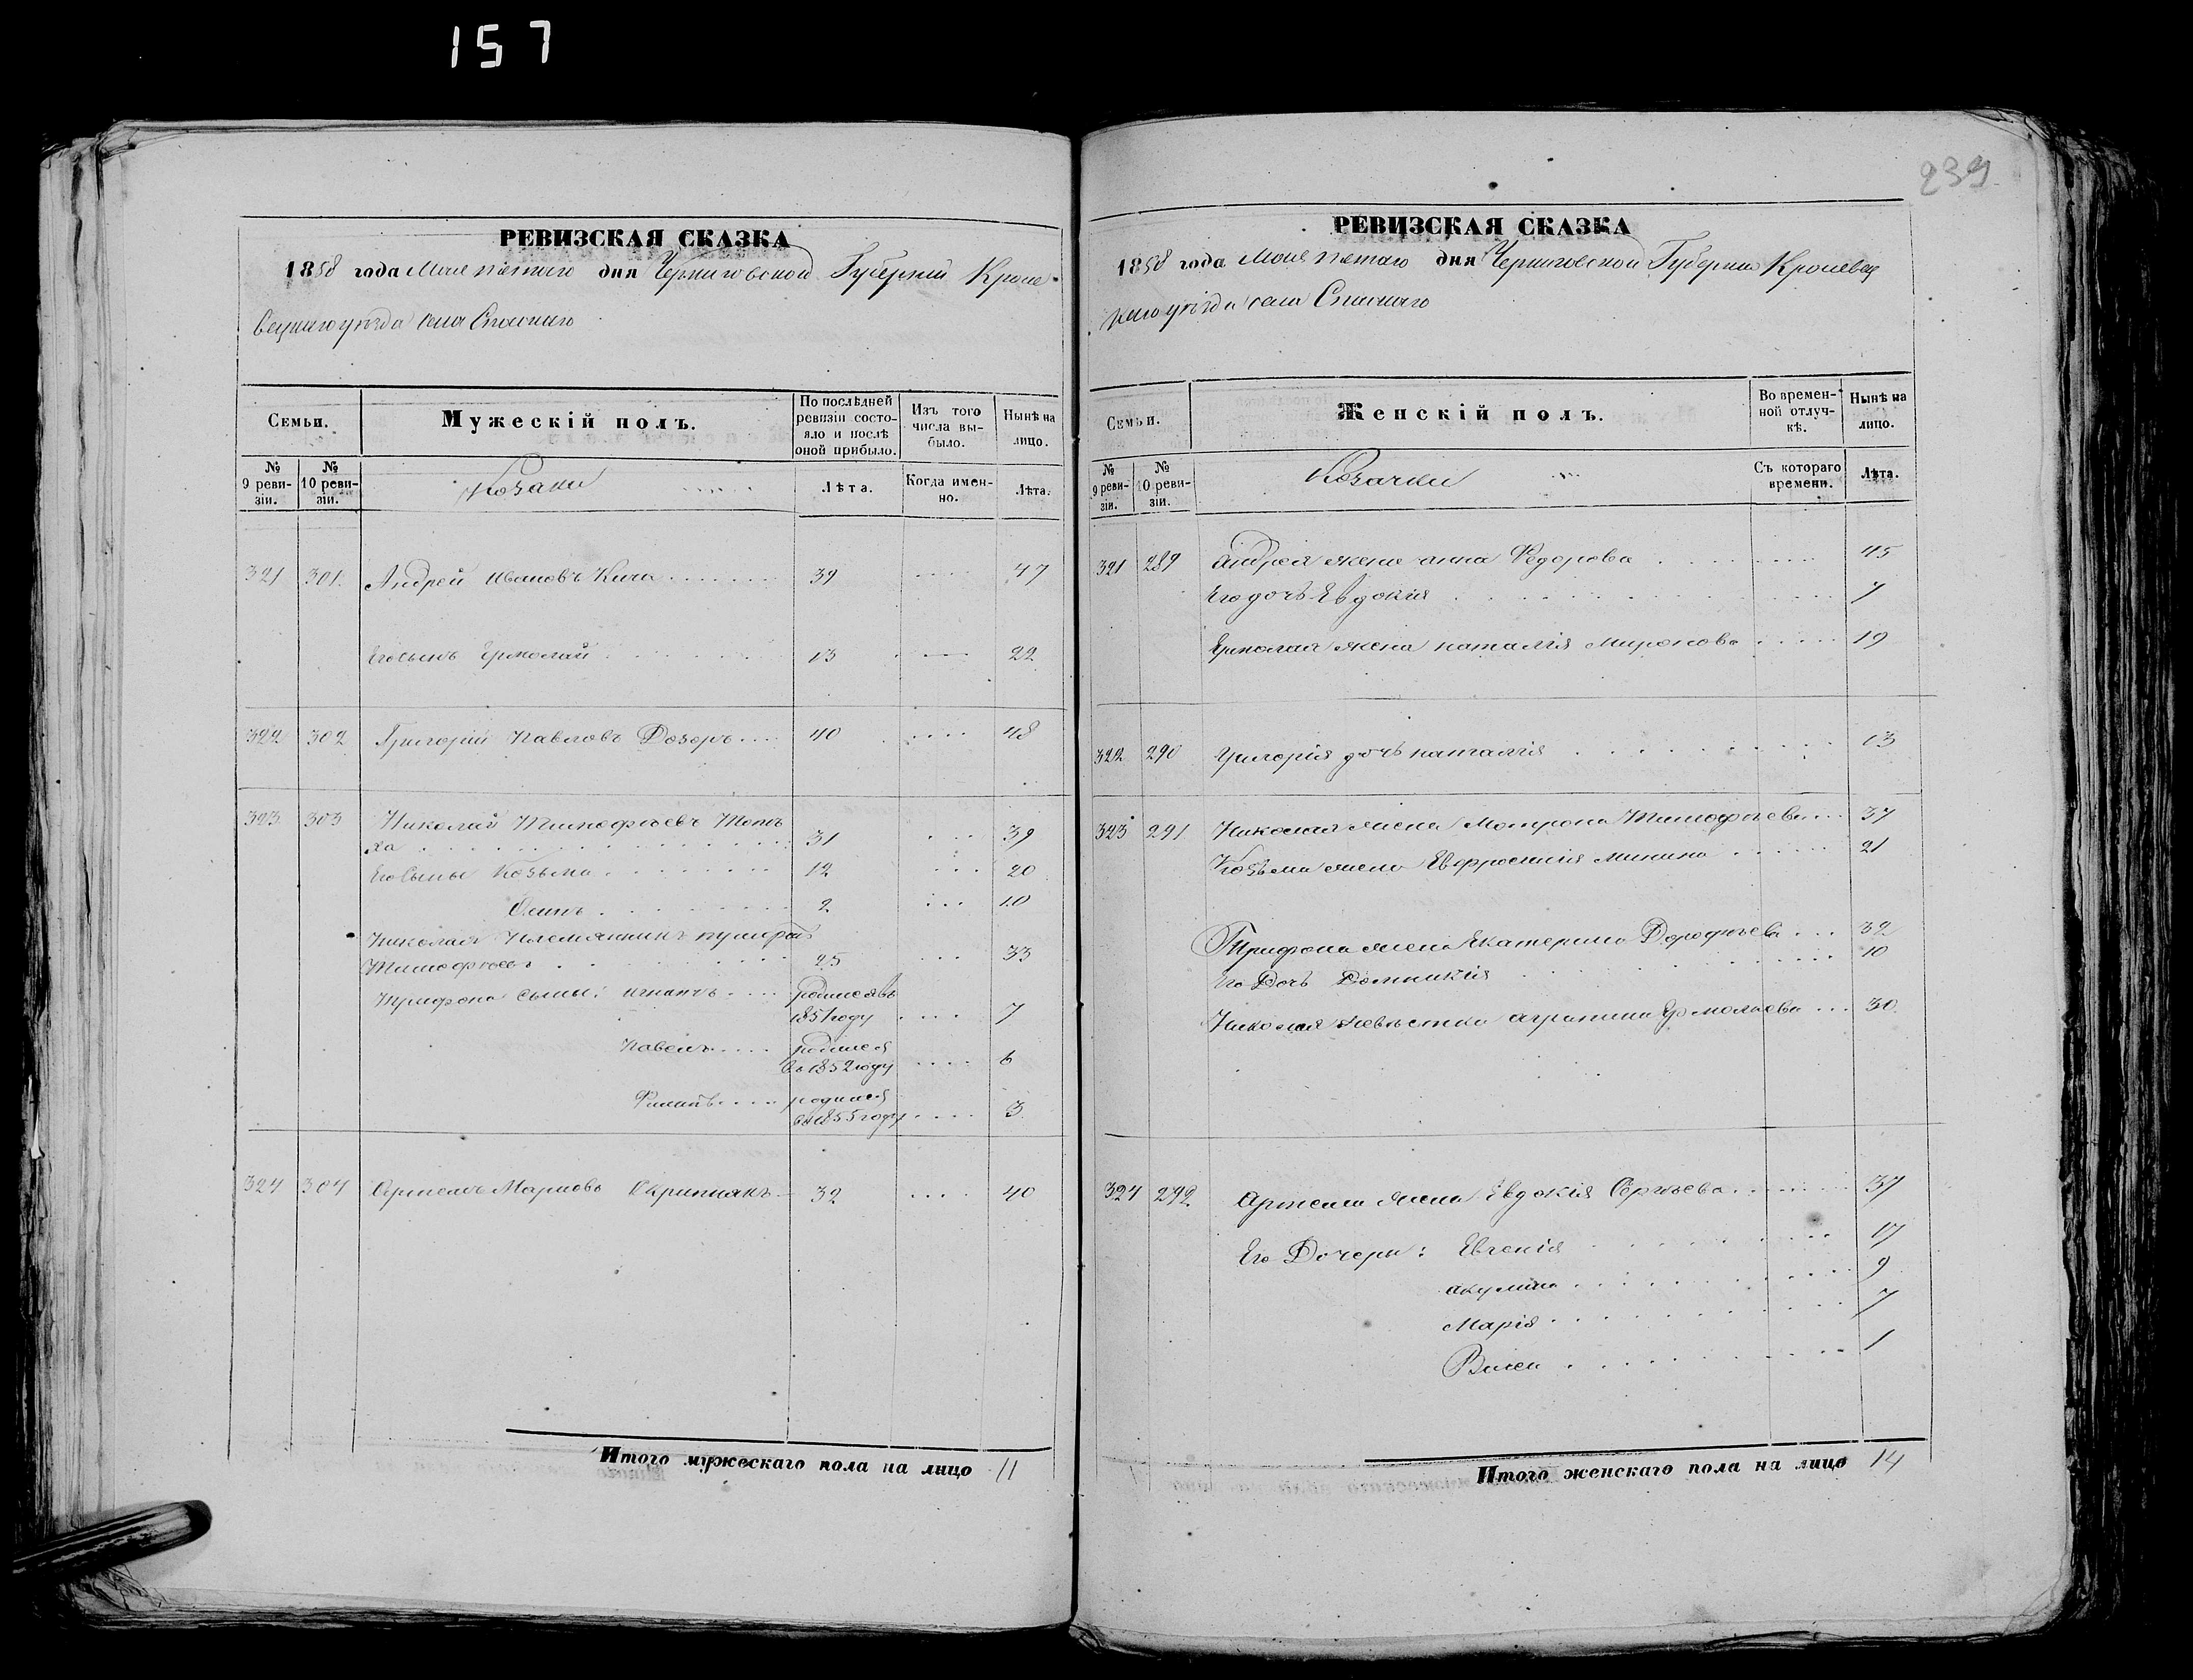 157
239
РЕВИЗСКАЯ СКАЗКА
1858 года Мая пятаго дня Черниговской Губерніи Кроле-
вецкаго уѣзда села Спаскаго
Семьи.
Мужескій полъ.
По послѣдней ревизіи состояло и послѣ оной прибыло.
Изъ того числа выбыло.
Нынѣ на лицо.
№ 9 ревизіи.
№ 10 ревизіи.
Козаки
Лѣта.
Когда именно.
Лѣта.
321 301. Андрей Ивановъ Кича 39 47
Его сынъ Ермолай 13 22
322 302 Григорій Павловъ Дозоръ 40 48
323 303 Николай Тимофѣевъ
ха 31 39
Его Сыны Козьма 12 20
2 10
Николая Племянникъ
Тимофѣевъ 25 33
Трифона сыны: Игнатъ родился въ
1851 году 7
Павелъ родился
въ 1852 году 6
Филипъ родился
въ 1855 году 3
324 304 Артемъ Марковъ Скрипнякъ 32 40
Итого мужескаго пола на лицо 11
РЕВИЗСКАЯ СКАЗКА
1858 года Мая пятаго дня Черниговской Губерніи Кролевец
каго уѣзда села Спаскаго
Семьи.
Женскій полъ.
Во временной отлучкѣ.
Нынѣ на лицо.
№ 9 ревизіи.
№ 10 ревизіи.
Козачки
Съ котораго времени.
Лѣта.
321 289 Андрея жена Анна Федорова 45
Его дочь Евдокія 7
Ермолая жена Наталія Миронова 19
322 290 Григорія дочь Наталія 13
323 291 Николая жена Матрона Тимофѣева 37
Козьмы жена Евфросинія Минина 21
Трифона жена Екатерина Дорофѣева 32
Его Дочь Домникія 10
Николая невѣстка Агрипина Ермолаева 30
324 292 Артема жена Евдокія Сергѣева 37
Его Дочери: Евгенія 17
Акулина 9
Марія 7
1
Итого женскаго пола на лицо 14